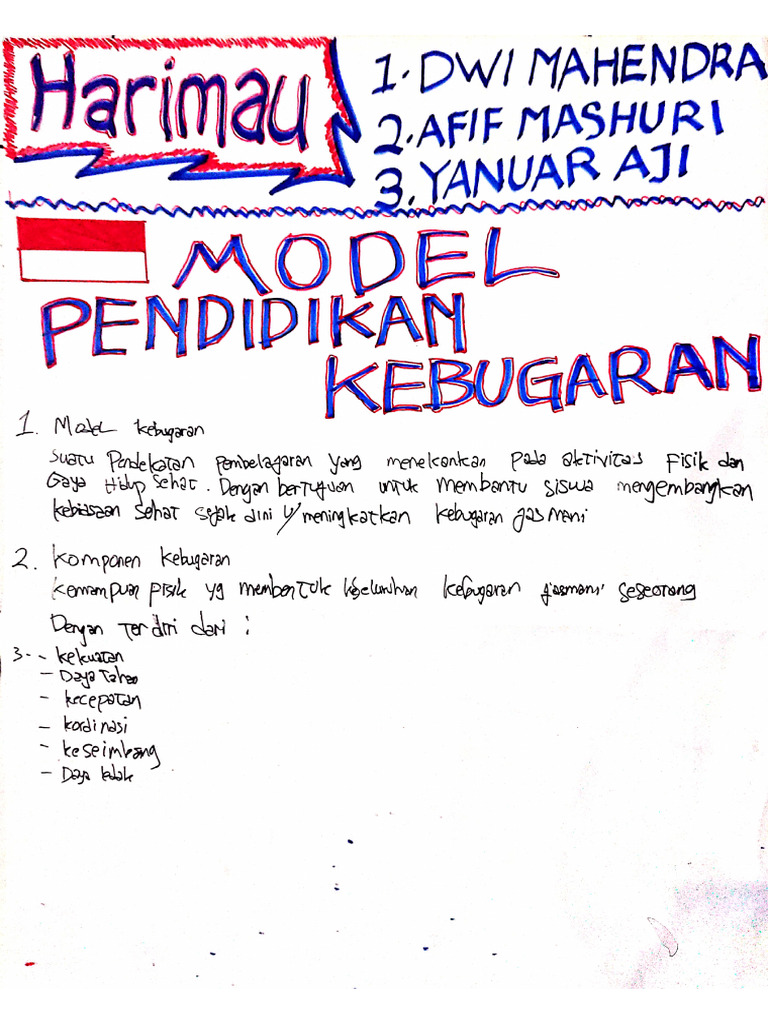 Harimau
1. DWI MAHENDRA
2. AFIF MASHURI
3. YANUAR AJI
MODEL
PENDIDIKAN
KEBUGARAN
1. Model kebugaran
Suatu Pendekatan pembelagaran yang menekankan pada aktivitas Fisik dan
Gaya Hidup Sehat. Dengan bertuguan untuk membantu siswa mengembangkan
kebiasaan sehat sejak dini u/ meningkatkan kebugaran jasmani
2. Komponen Kebugaran
Kemampuan pisik yg membentuk keseluruhan kebugaran jasmani seseorang
Dengan Terdiri dari :
3. - kekuatan
- Daya Tahan
- kecepatan
- kordinasi
- keseimbang
- Daya ledak